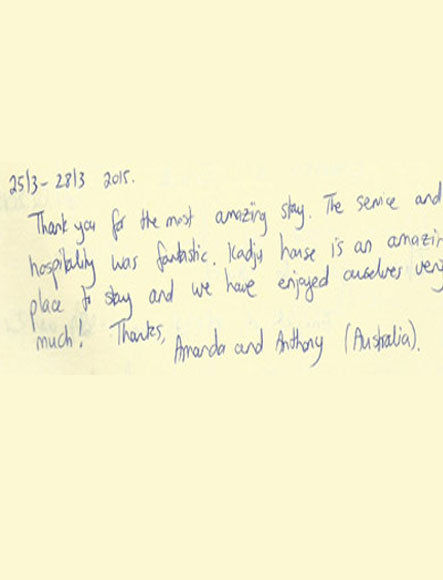 25/3 - 28/3 2015.
Thank you for the most amazing stay. The service and
hospitality was fantastic. Kadju house is an amazin
place to stay and we have enjoyed ourselves very
much! Thanks,
Amanda and Anthony (Australia).